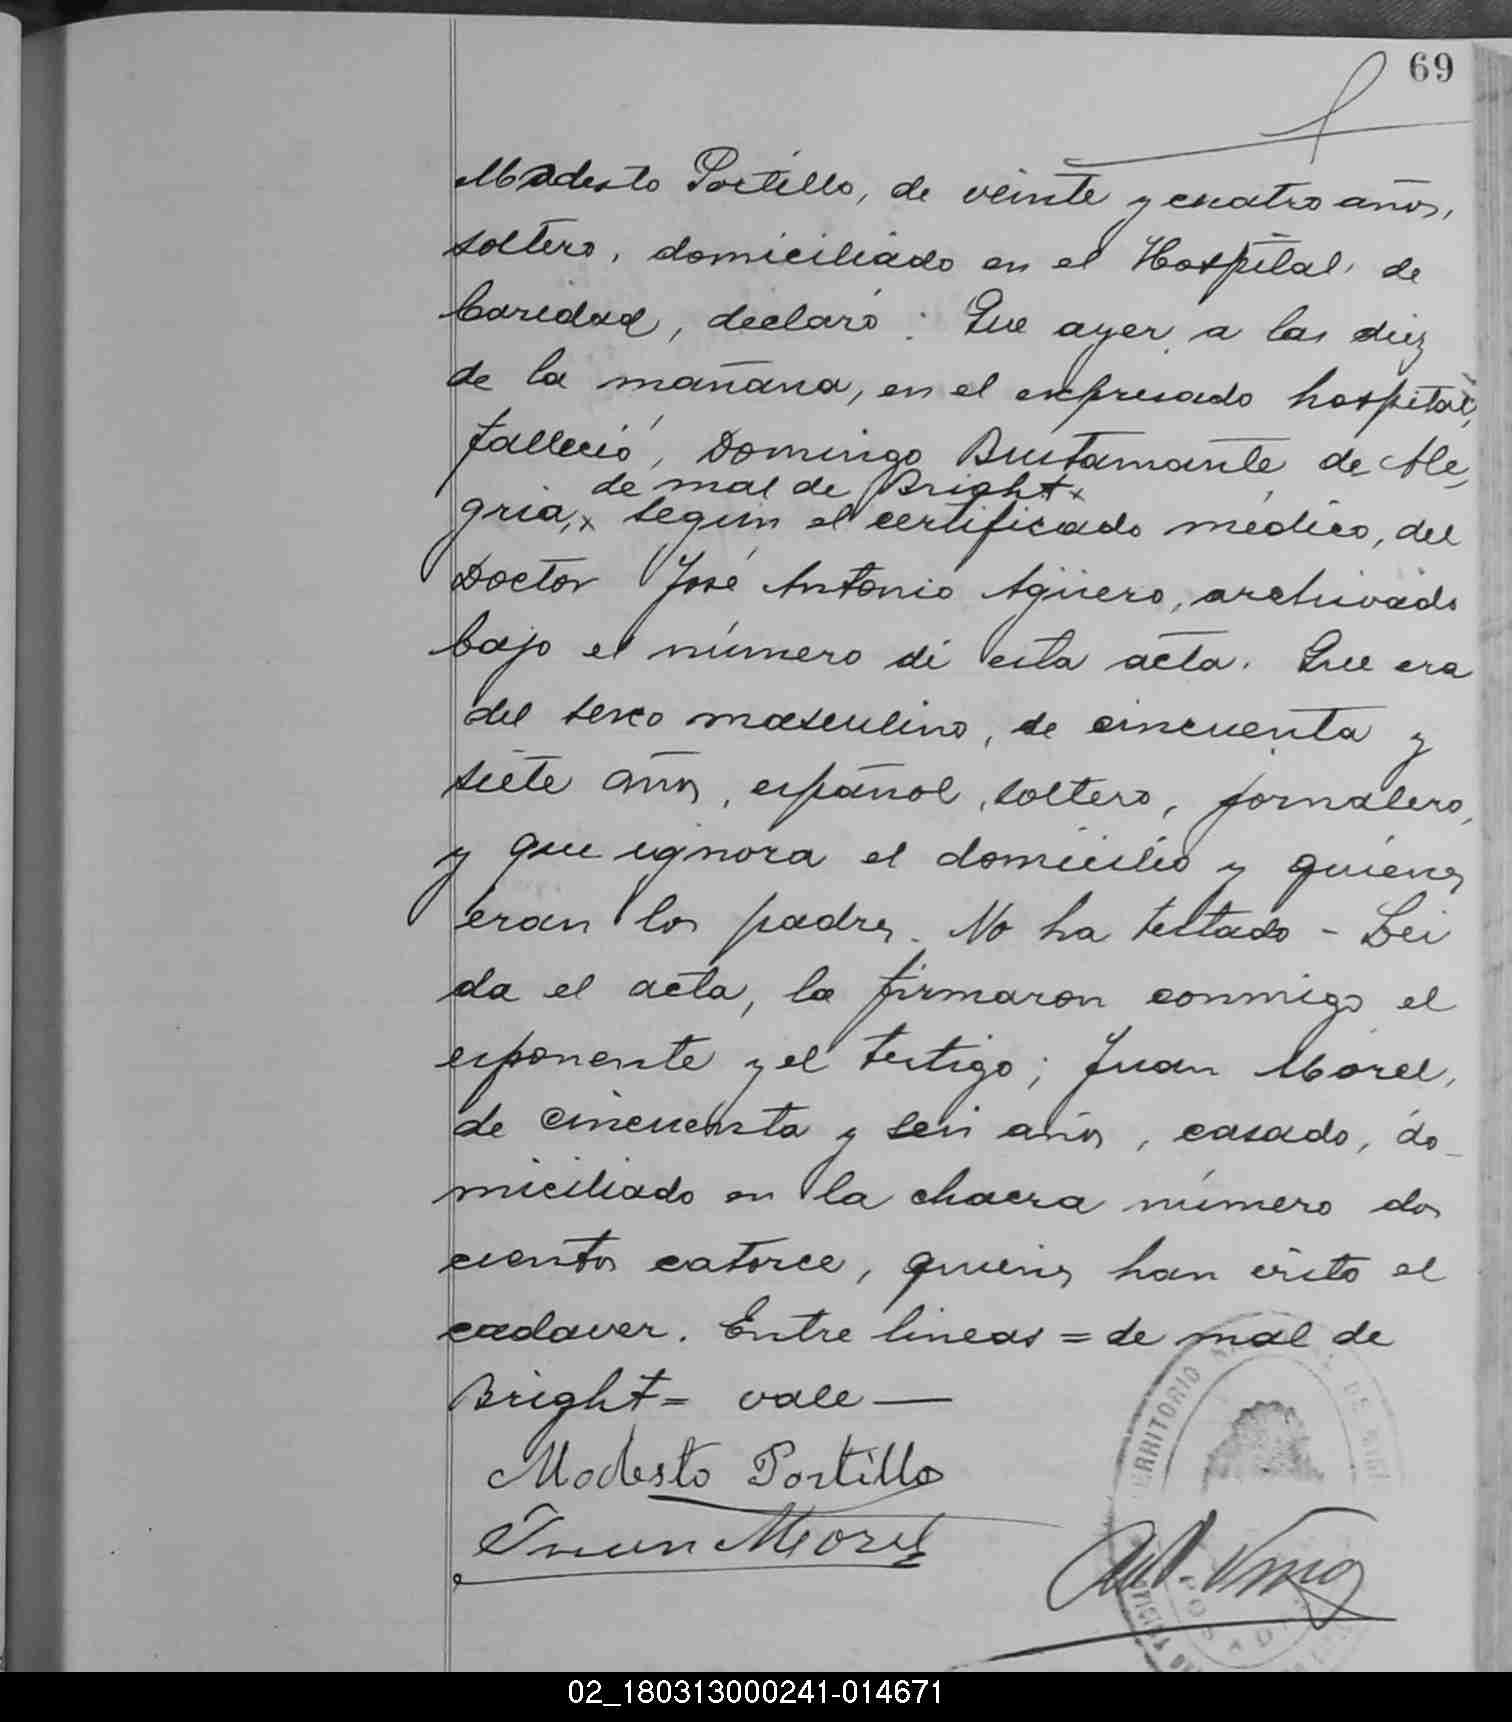 69
Modesto Portillo, de veinte y cuatro años,
soltero, domiciliado en el Hospital de
Caridad, declaró: Que ayer a las diez
de la mañana, en el expresado hospital,
falleció, Domingo Bustamante de Ale-
de mal de Bright x
gria, x según el certificado médico, del
Doctor José Antonio Agüero, archivado
bajo el número de esta acta. Que era
del sexo masculino, de cincuenta y
siete años, español, soltero, jornalero,
y que ignora el domicilio y quienes
eran los padres. No ha testado - Lei
da el acta, la firmaron conmigo el
exponente y el testigo; Juan Morel,
de cincuenta y seis años, casado, do-
miciliado en la chacra número dos
cientos catorce, quienes han visto el
cadaver. Entre lineas = de mal de
Bright = vale —
Modesto Portillo
Juan Morel
TERRITORIO
02_180313000241-014671